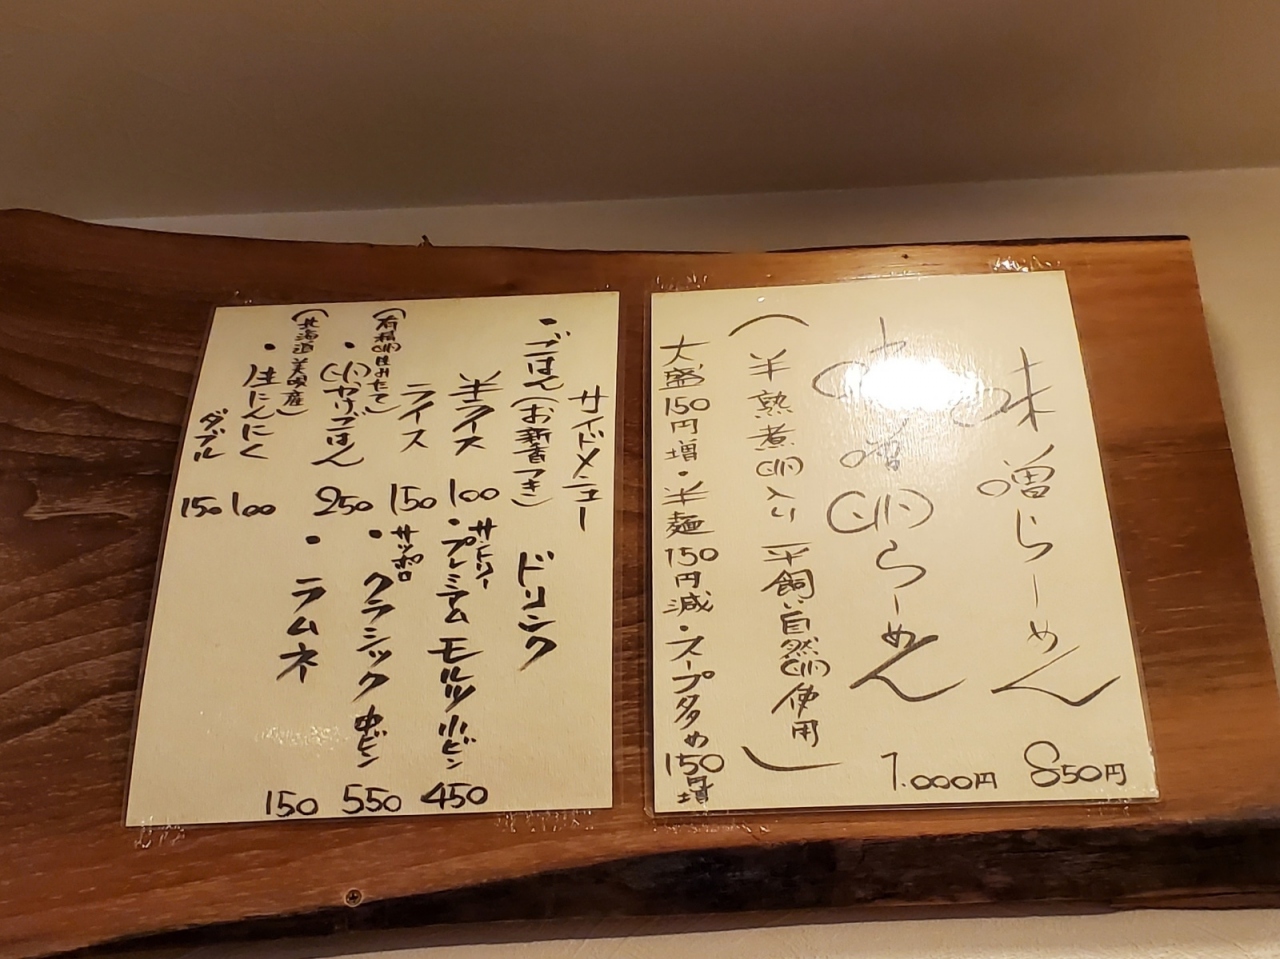 味噌らーめん 850円
味噌卵らーめん 1.000円
(半熟煮卵入り 平飼い自然卵使用)
大盛150円増・半麺150円減・スープ多め150円増
サイドメニュー
・ごはん(お新香つき)
半ライス 100
ライス 150
(有精卵生みたて)
・卵かけごはん 250
(北海道美唄産)
・生にんにく 100
ダブル 150
ドリンク
サントリー
・プレミアムモルツ小ビン 450
サッポロ
・クラシック中ビン 550
・ラムネ 150